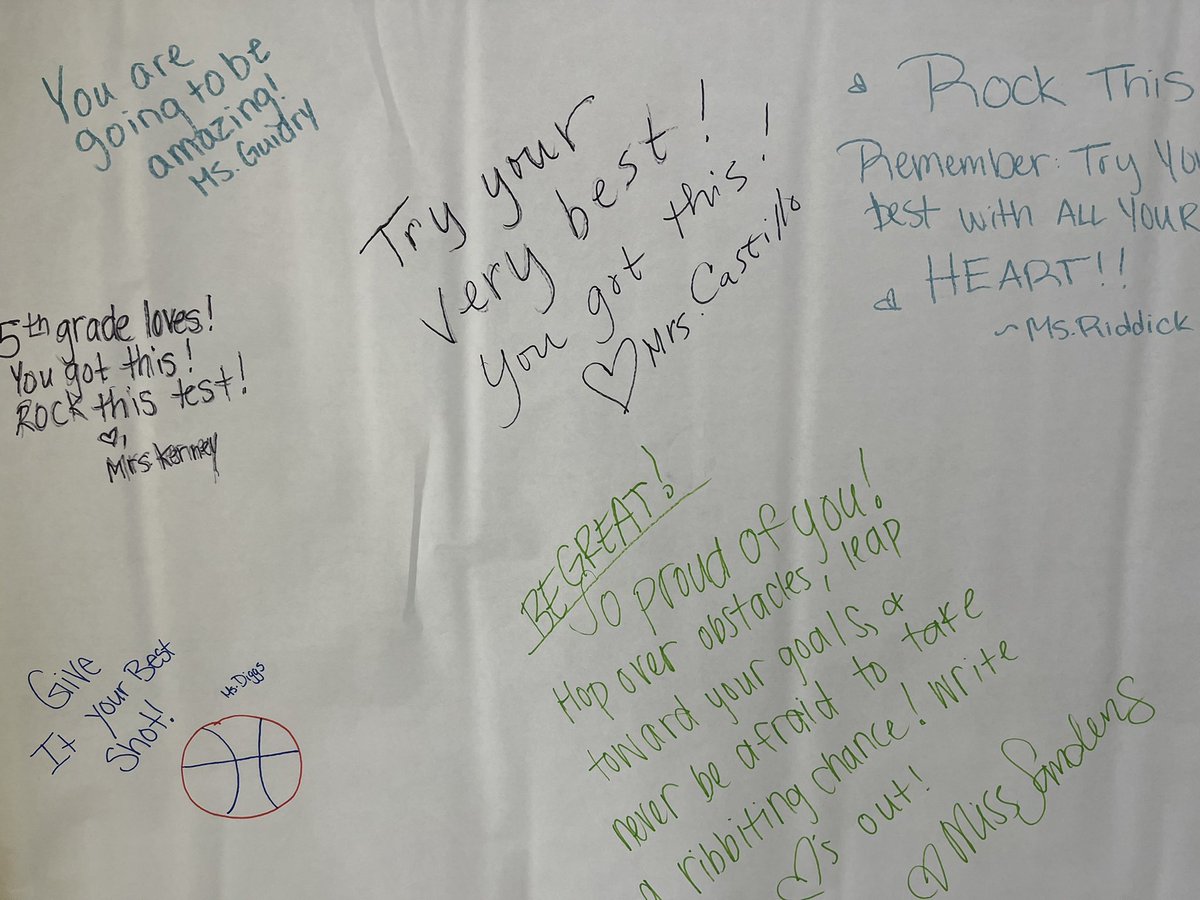 You are
going to be
amazing!
Ms. Guidry
Try your
very best!
you got this!
Mrs. Castillo
Rock This
Remember: Try You
best with ALL YOUR
HEART!!
~Ms. Riddick
5th grade loves!
You got this!
Rock this test!
Mrs. Kenney
BE GREAT!
So proud of you!
Hop over obstacles, leap
toward your goals, &
never be afraid to take
a ribbiting chance! Write
♡'s out!
Miss Sanders
Give
It your Best
Shot!
Ms. Diggs